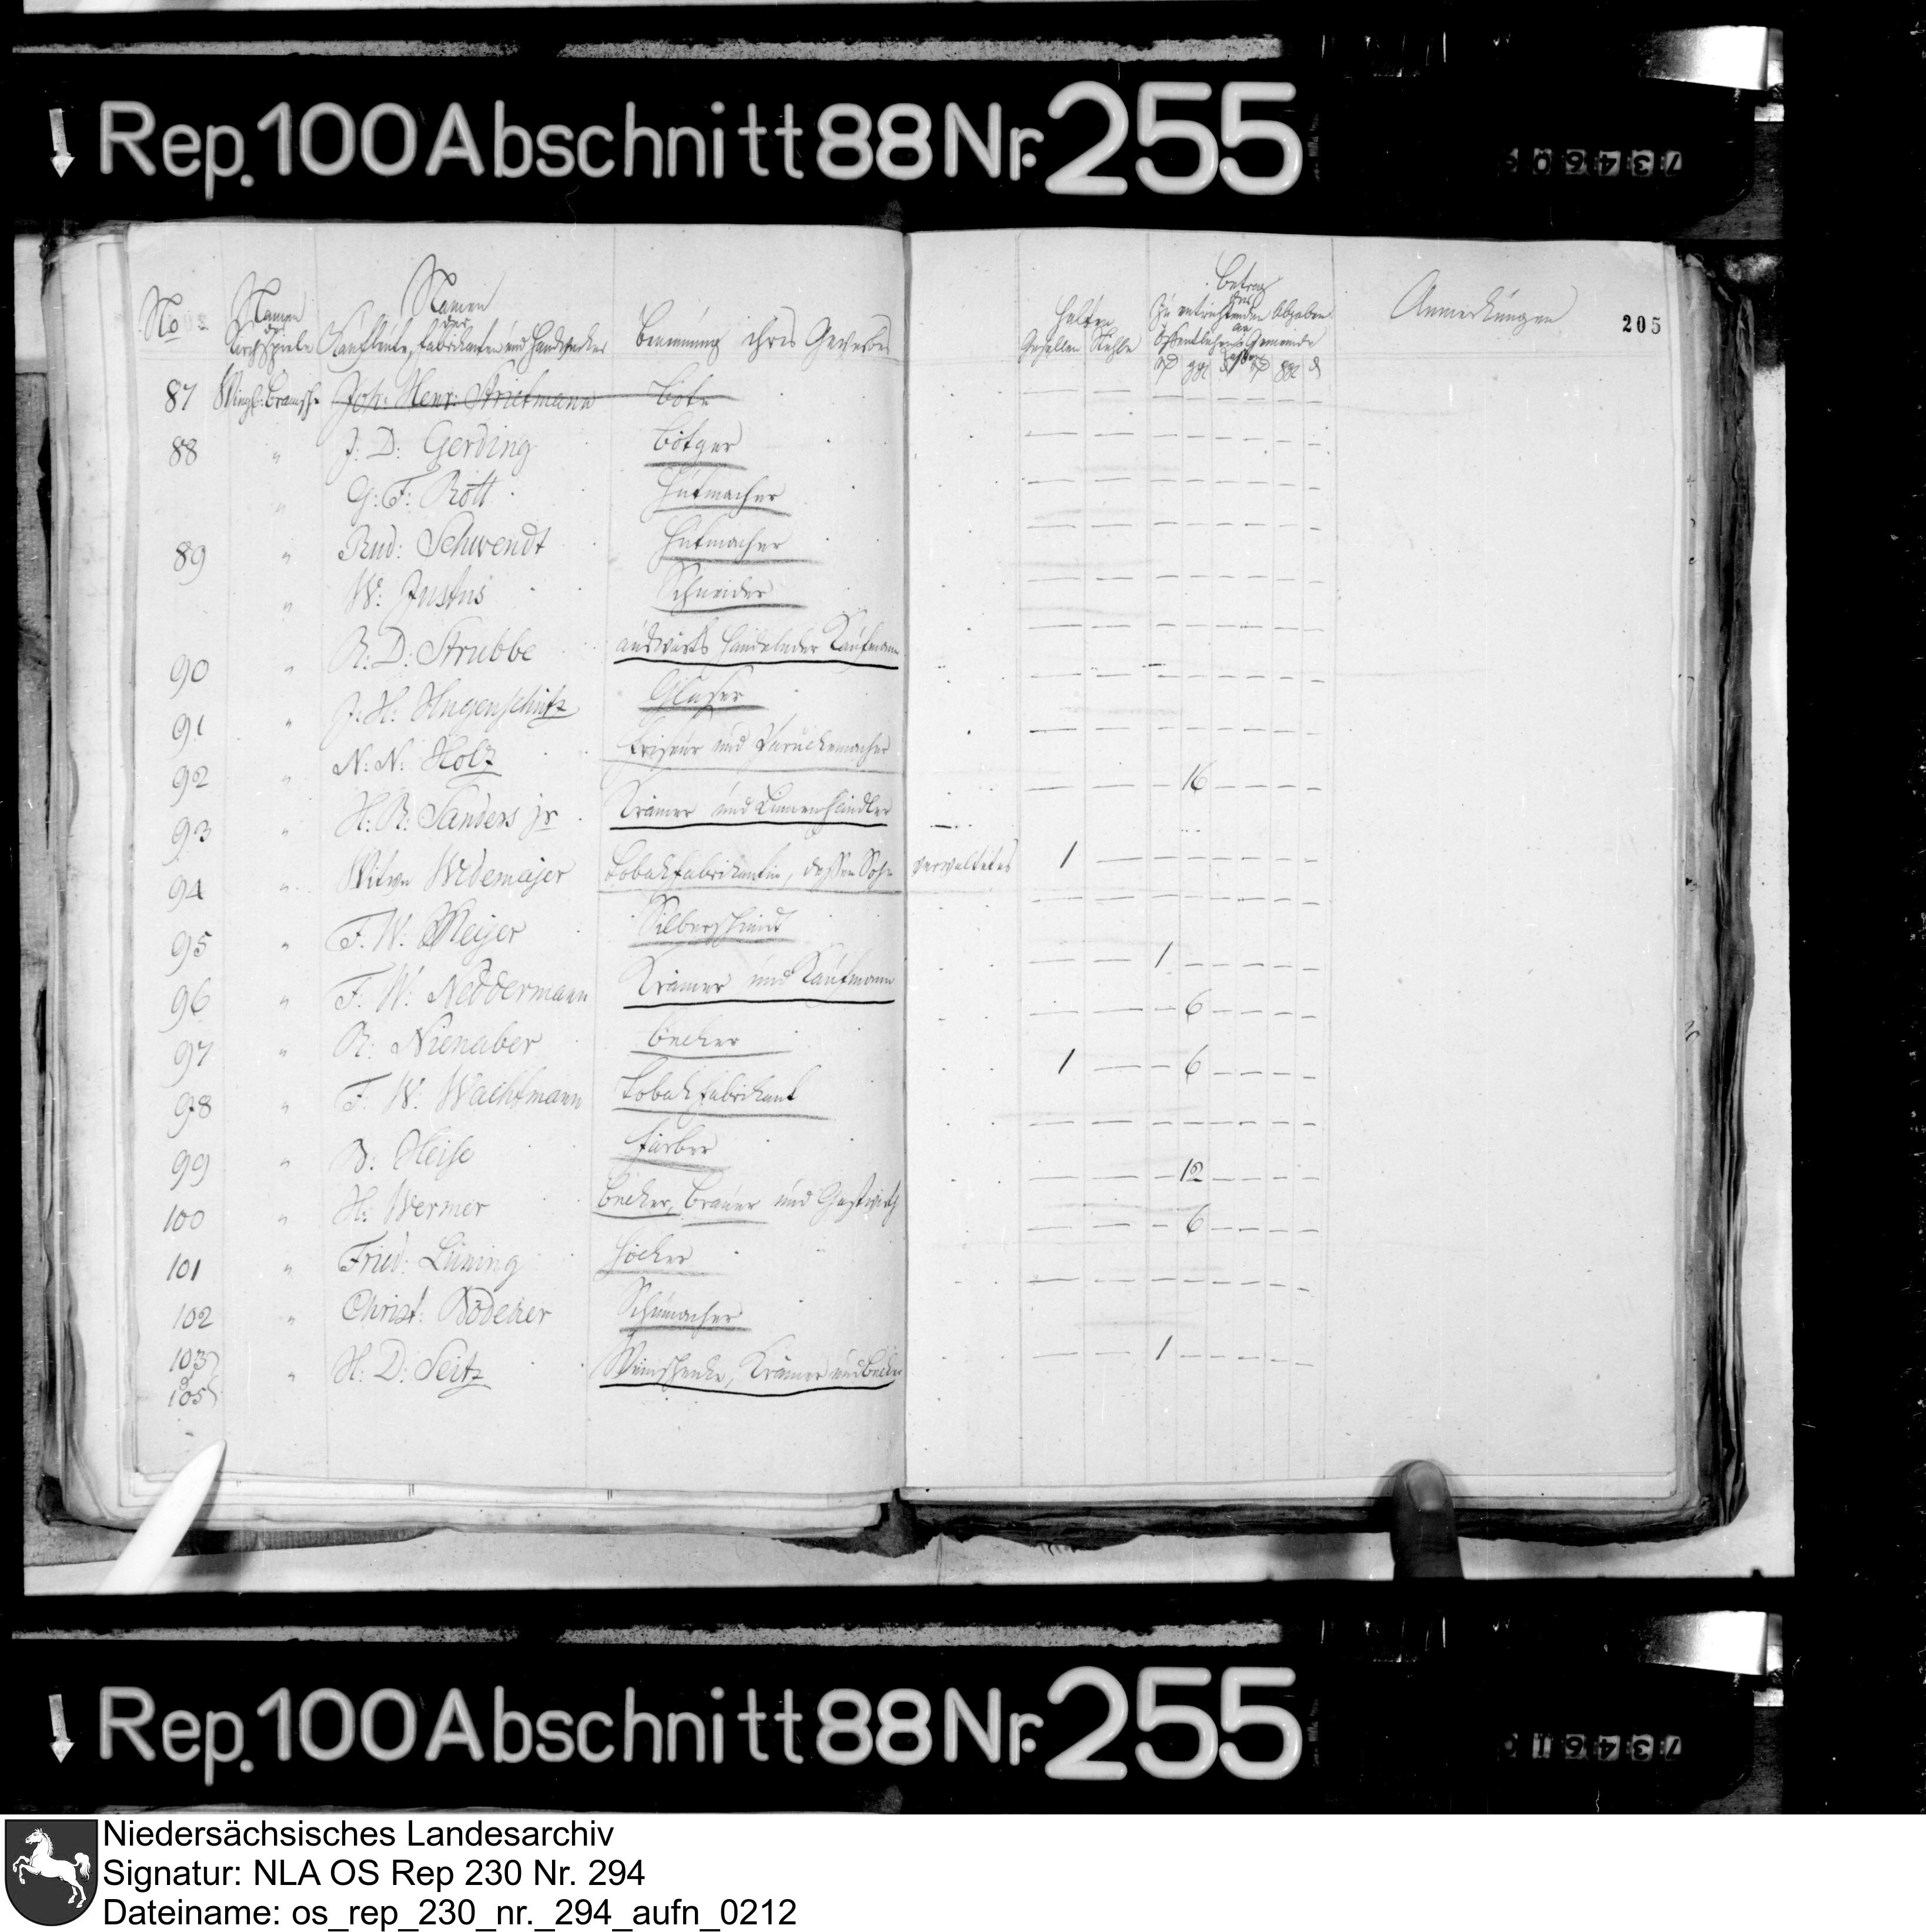 Rep. 100 Abschnitt 88 Nr. 255
205
No
Namen der Kirchspiele
Namen der Kaufleute, Fabrikanten und Handwerker
Benennung ihres Gewerbes
halten Gesellen Stühle
Betrag der zu entrichtenden Abgaben an
Anmerkungen
87 Joh: Henr: Strietmann Bote — — — — — — — —
88 " J: D: Gerding Bötger — — — — — — — —
" G: F: Rott Hutmacher — — — — — — — —
89 " Rud: Schwendt Hutmacher — — — — — — — —
" W: Justus Schneider — — — — — — — —
90 " R: D: Strubbe auswärts handelnder Kaufmann — — — — — — — —
91 " J: H: Hugenschütz Glaser — — — — — — — —
92 " N: N: Holz Friseur und Paruckemacher — — — — — — — —
93 " H: R: Sanders jr Krämer und Linnenhändler — — — 16 — — — —
94 " Witwe Wedemeijer Tobakfabrikantin, dessen Sohn verwaltet es 1 — — — — — — —
95 " F. W: Meijer Silberschmidt — — — — — — — —
96 " F. W: Neddermann Krämer und Kaufmann — — 1 — — — — —
97 " R: Nienaber Becker — — — 6 — — — —
98 " F. W: Wachtmann Tobakfabrikant 1 — — 6 — — — —
99 " B: Heise Färber — — — — — — — —
100 " H: Wermer Becker, Brauer und Gastwirth — — — 12 — — — —
101 " Fried: Lüning Höcker — — — 6 — — — —
102 " Christ: Bödeker Schumacher — — — — — — — —
103 105 " H: D: Seitz Weinschenke, Krämer und Becker — — 1 — — — — —
Rep. 100 Abschnitt 88 Nr. 255
Niedersächsisches Landesarchiv
Signatur: NLA OS Rep 230 Nr. 294
Dateiname: os_rep_230_nr._294_aufn_0212